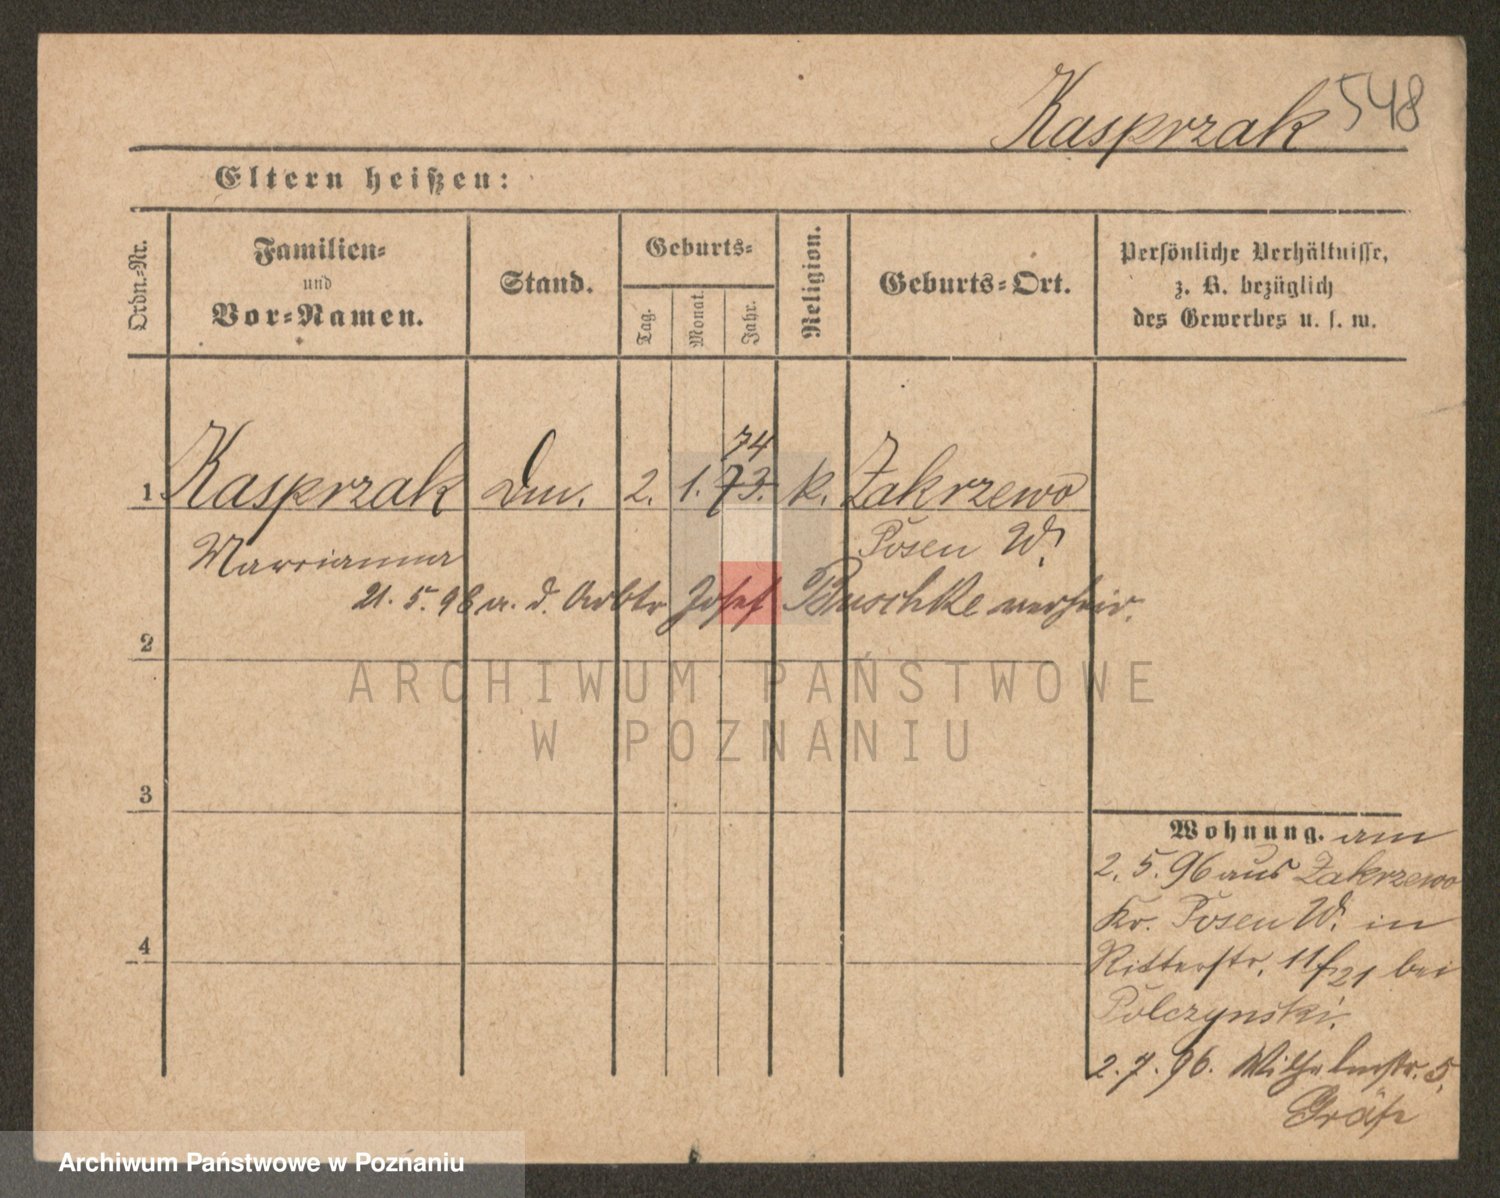 Kasprzak 548
Eltern heißen:
Ordn.-Nr.
Familien-
und
Vor-Namen.
Stand.
Geburts-
Tag.
Monat.
Jahr.
Religion.
Geburts-Ort.
Persönliche Verhältnisse,
z. B. bezüglich
des Gewerbes u. s. w.
74
1 Kasprzak 2. 1. 73. k. Zakrzewo
Marrianna Posen W.
21. 5. 98 a. d. Arbtr Josef Buschke verheir.
2
ARCHIWUM PAŃSTWOWE
W POZNANIU
3
4
Wohnung. am
2. 5. 96 aus Zakrzewo
Kr. Posen W. in
Ritterstr. 11/21 bei
Polczynski.
2. 7. 96. Wilhelmstr. 5,
Gräfe
Archiwum Państwowe w Poznaniu